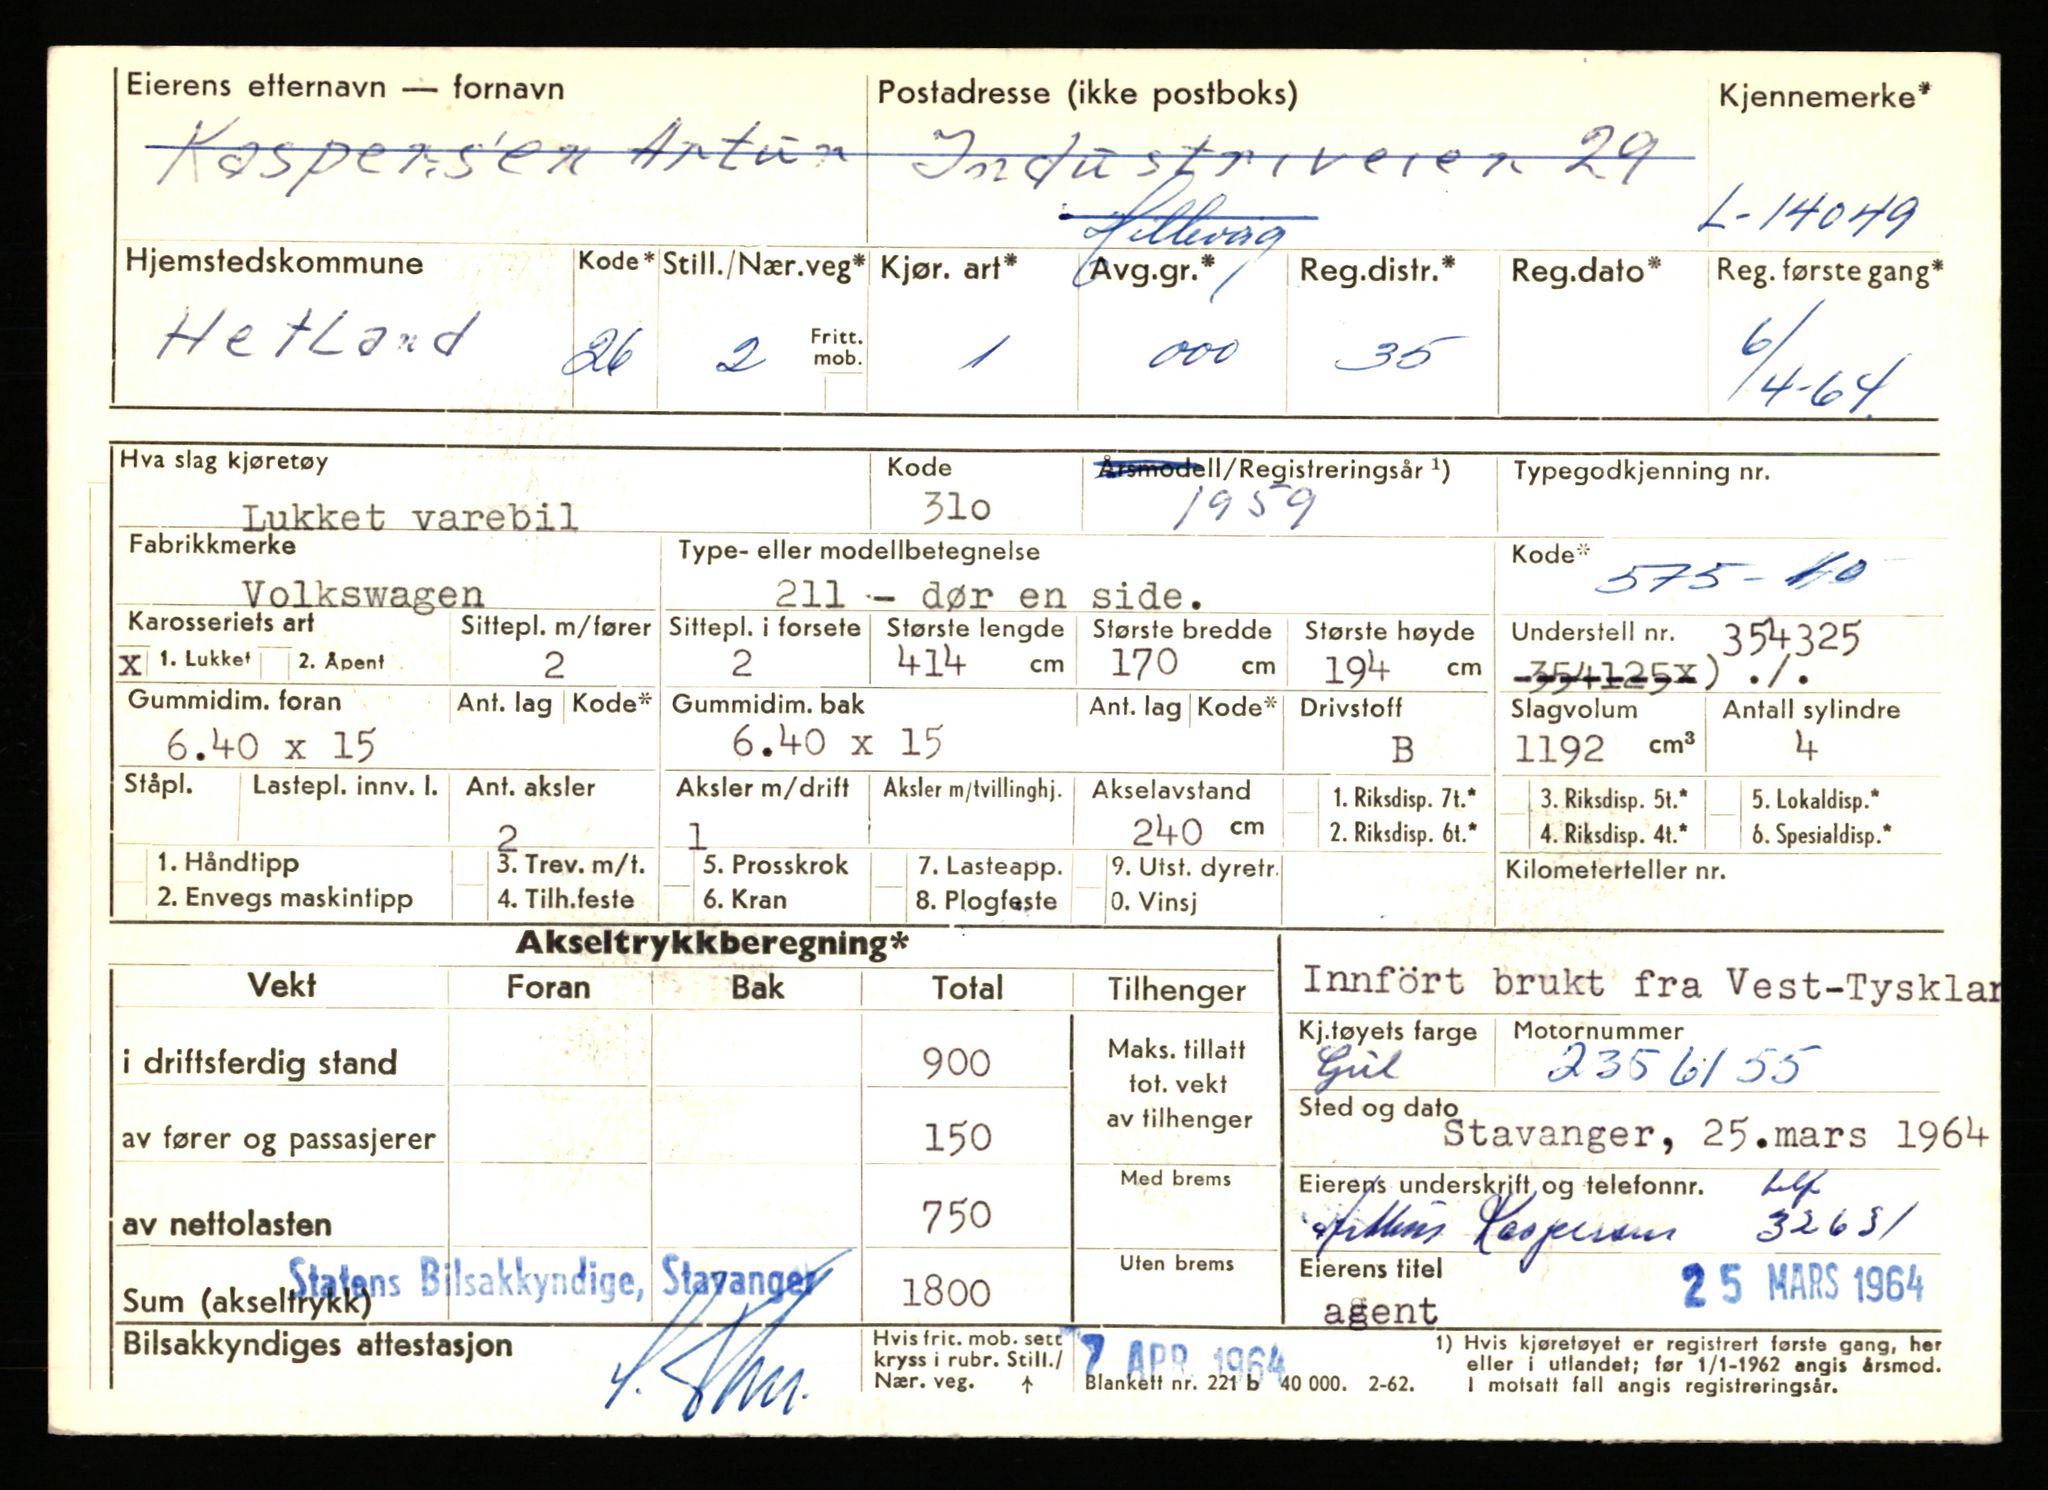 Eierens etternavn — fornavn Postadresse (ikke postboks) Kjennemerke*
Kaspersen Artur Industriveien 29
Hillevåg L-14049
Hjemstedskommune Kode* Still./Nær.veg* Kjør. art* Avg.gr.* Reg.distr.* Reg.dato* Reg. første gang*
Hetland 26 2 Fritt. mob. 1 000 35 6/4-64.
Hva slag kjøretøy Kode Årsmodell/Registreringsår ¹) Typegodkjenning nr.
Lukket varebil 31o 1959
Fabrikkmerke Type- eller modellbetegnelse Kode*
Volkswagen 211 - dør en side. 575-10
Karosseriets art Sittepl. m/fører Sittepl. i forsete Største lengde Største bredde Største høyde Understell nr. 354325
X 1. Lukket 2. Åpent 2 2 414 cm 170 cm 194 cm 354125x) ./.
Gummidim. foran Ant. lag Kode* Gummidim. bak Ant. lag Kode* Drivstoff Slagvolum Antall sylindre
6.40 x 15 6.40 x 15 B 1192 cm³ 4
Ståpl. Lastepl. innv. l. Ant. aksler Aksler m/drift Aksler m/tvillinghj. Akselavstand 1. Riksdisp. 7t.* 3. Riksdisp. 5t.* 5. Lokaldisp.*
2 1 240 cm 2. Riksdisp. 6t.* 4. Riksdisp. 4t.* 6. Spesialdisp.*
1. Håndtipp 3. Trev. m/t. 5. Prosskrok 7. Lasteapp. 9. Utst. dyretr. Kilometerteller nr.
2. Envegs maskintipp 4. Tilh.feste 6. Kran 8. Plogfeste 0. Vinsj
Akseltrykkberegning*
Vekt Foran Bak Total Tilhenger Innfört brukt fra Vest-Tysklan
Kj.tøyets farge Motornummer
i driftsferdig stand 900 Maks. tillatt tot. vekt av tilhenger Gul 2356155
Sted og dato
av fører og passasjerer 150 Stavanger, 25.mars 1964
Med brems Eierens underskrift og telefonnr. telf
av nettolasten 750 Kaspersen 32631
Statens Bilsakkyndige, Stavanger Uten brems Eierens titel 25 MARS 1964
Sum (akseltrykk) 1800 agent
Bilsakkyndiges attestasjon Hvis frit. mob. sett kryss i rubr. Still./ Nær. veg. ↑ 7 APR. 1964
Blankett nr. 221 b 40 000. 2-62.
1) Hvis kjøretøyet er registrert første gang, her
eller i utlandet; før 1/1-1962 angis årsmod.
I motsatt fall angis registreringsår.